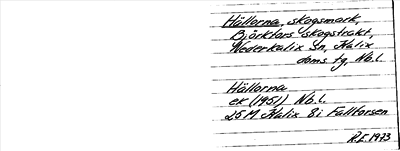 Hällorna, skogsmark,
Björkfors skogstrakt,
Nederkalix sn, Kalix
doms tg, Nb.l.
Hällorna
ek (1951) Nb.l.
25M Kalix 8i Fallforsen
R.I. 1973